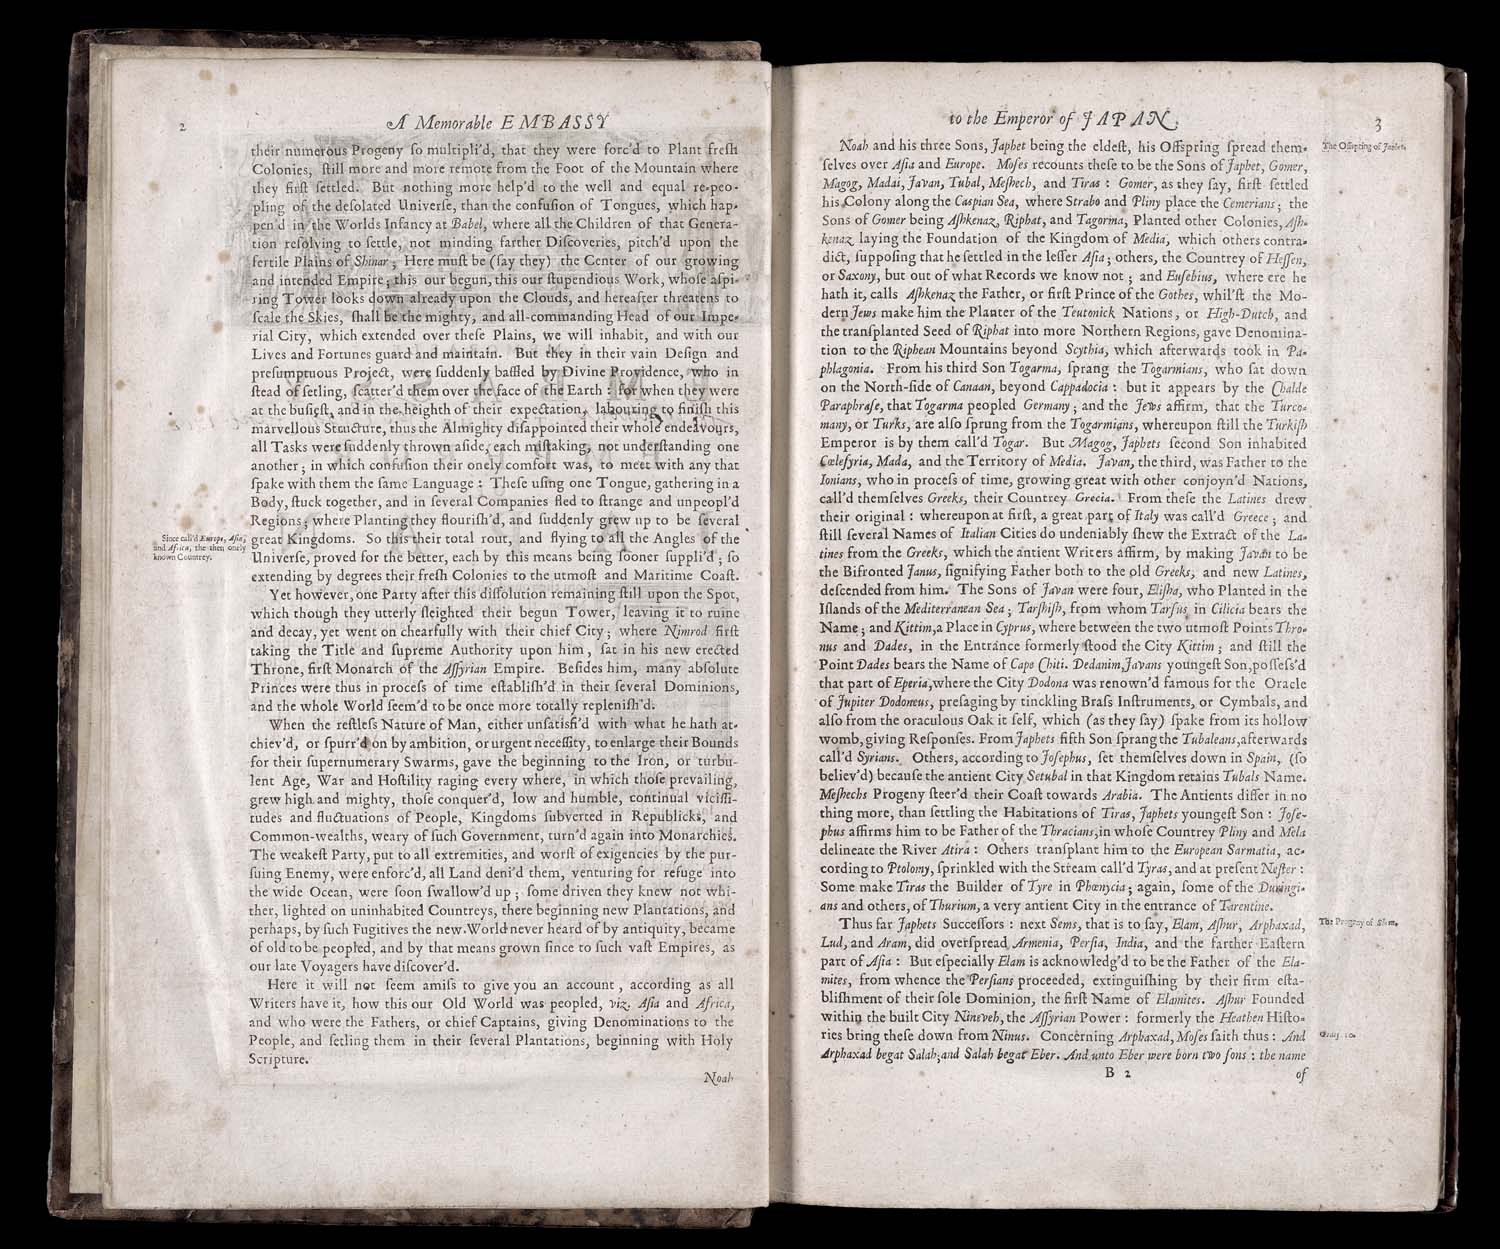 2
A Memorable EMBASSY
their numerous Progeny ſo multipli'd, that they were forc'd to Plant freſh
Colonies, ſtill more and more remote from the Foot of the Mountain where
they firſt ſettled. But nothing more help'd to the well and equal re-peo-
pling of the deſolated Univerſe, than the confuſion of Tongues, which hap-
pen'd in the Worlds Infancy at Babel, where all the Children of that Genera-
tion reſolving to ſettle, not minding farther Diſcoveries, pitch'd upon the
fertile Plains of Shinar; Here muſt be (ſay they) the Center of our growing
and intended Empire; this our begun, this our ſtupendious Work, whoſe aſpi-
ring Tower looks down already upon the Clouds, and hereafter threatens to
ſcale the Skies, ſhall be the mighty, and all-commanding Head of our Impe-
rial City, which extended over theſe Plains, we will inhabit, and with our
Lives and Fortunes guard and maintain. But they in their vain Deſign and
preſumptuous Project, were ſuddenly baffled by Divine Providence, who in
ſtead of ſetling, ſcatter'd them over the face of the Earth: for when they were
at the buſieſt, and in the heighth of their expectation, labouring to finiſh this
marvellous Structure, thus the Almighty diſappointed their whole endeavours,
all Tasks were ſuddenly thrown aſide, each miſtaking, not underſtanding one
another; in which confuſion their onely comfort was, to meet with any that
ſpake with them the ſame Language: Theſe uſing one Tongue, gathering in a
Body, ſtuck together, and in ſeveral Companies fled to ſtrange and unpeopl'd
Regions; where Planting they flouriſh'd, and ſuddenly grew up to be ſeveral
great Kingdoms. So this their total rout, and flying to all the Angles of the
Univerſe, proved for the better, each by this means being ſooner ſuppli'd; ſo
extending by degrees their freſh Colonies to the utmoſt and Maritime Coaſt.
Since call'd Europe, Aſia,
and Africa, the then onely
known Countrey.
Yet however, one Party after this diſſolution remaining ſtill upon the Spot,
which though they utterly ſleighted their begun Tower, leaving it to ruine
and decay, yet went on chearfully with their chief City; where Nimrod firſt
taking the Title and ſupreme Authority upon him, ſat in his new erected
Throne, firſt Monarch of the Aſſyrian Empire. Beſides him, many abſolute
Princes were thus in proceſs of time eſtabliſh'd in their ſeveral Dominions,
and the whole World ſeem'd to be once more totally repleniſh'd.
When the reſtleſs Nature of Man, either unſatisfi'd with what he hath at-
chiev'd, or ſpurr'd on by ambition, or urgent neceſſity, to enlarge their Bounds
for their ſupernumerary Swarms, gave the beginning to the Iron, or turbu-
lent Age, War and Hoſtility raging every where, in which thoſe prevailing,
grew high and mighty, thoſe conquer'd, low and humble, continual viciſſi-
tudes and fluctuations of People, Kingdoms ſubverted in Republicks, and
Common-wealths, weary of ſuch Government, turn'd again into Monarchies.
The weakeſt Party, put to all extremities, and worſt of exigencies by the pur-
ſuing Enemy, were enforc'd, all Land deni'd them, venturing for refuge into
the wide Ocean, were ſoon ſwallow'd up; ſome driven they knew not whi-
ther, lighted on uninhabited Countreys, there beginning new Plantations, and
perhaps, by ſuch Fugitives the new World never heard of by antiquity, became
of old to be peopled, and by that means grown ſince to ſuch vaſt Empires, as
our late Voyagers have diſcover'd.
Here it will not ſeem amiſs to give you an account, according as all
Writers have it, how this our Old World was peopled, viz. Aſia and Africa,
and who were the Fathers, or chief Captains, giving Denominations to the
People, and ſetling them in their ſeveral Plantations, beginning with Holy
Scripture.
Noah
to the Emperor of JAPAN.
3
Noah and his three Sons, Japhet being the eldeſt, his Offspring ſpread them-
ſelves over Aſia and Europe. Moſes recounts theſe to be the Sons of Japhet, Gomer,
Magog, Madai, Javan, Tubal, Meſhech, and Tiras: Gomer, as they ſay, firſt ſettled
his Colony along the Caspian Sea, where Strabo and Pliny place the Cemerians; the
Sons of Gomer being Aſhkenaz, Riphat, and Tagorma, Planted other Colonies, Aſh-
kenaz laying the Foundation of the Kingdom of Media, which others contra-
dict, ſuppoſing that he ſettled in the leſſer Aſia; others, the Countrey of Heſſen,
or Saxony, but out of what Records we know not; and Euſebius, where ere he
hath it, calls Aſhkenaz the Father, or firſt Prince of the Gothes, whil'ſt the Mo-
dern Jews make him the Planter of the Teutonick Nations, or High-Dutch, and
the tranſplanted Seed of Riphat into more Northern Regions, gave Denomina-
tion to the Riphean Mountains beyond Scythia, which afterwards took in Pa-
phlagonia. From his third Son Togarma, ſprang the Togarmians, who ſat down
on the North-ſide of Canaan, beyond Cappadocia: but it appears by the Chalde
Paraphraſe, that Togarma peopled Germany; and the Jews affirm, that the Turco-
many, or Turks, are alſo ſprung from the Togarmians, whereupon ſtill the Turkiſh
Emperor is by them call'd Togar. But Magog, Japhets ſecond Son inhabited
Cœleſyria, Mada, and the Territory of Media. Javan, the third, was Father to the
Ionians, who in proceſs of time, growing great with other conjoyn'd Nations,
call'd themſelves Greeks, their Countrey Grecia. From theſe the Latines drew
their original: whereupon at firſt, a great part of Italy was call'd Greece; and
ſtill ſeveral Names of Italian Cities do undeniably ſhew the Extract of the La-
tines from the Greeks, which the antient Writers affirm, by making Javan to be
the Bifronted Janus, ſignifying Father both to the old Greeks, and new Latines,
deſcended from him. The Sons of Javan were four, Eliſha, who Planted in the
Iſlands of the Mediterranean Sea; Tarſhiſh, from whom Tarſus in Cilicia bears the
Name; and Kittim, a Place in Cyprus, where between the two utmoſt Points Thro-
nus and Dades, in the Entrance formerly ſtood the City Kittim; and ſtill the
Point Dades bears the Name of Cape Chiti. Dedanim, Javans youngeſt Son, poſſeſs'd
that part of Eperia, where the City Dodona was renown'd famous for the Oracle
of Jupiter Dodoneus, preſaging by tinckling Braſs Inſtruments, or Cymbals, and
alſo from the oraculous Oak it ſelf, which (as they ſay) ſpake from its hollow
womb, giving Reſponſes. From Japhets fifth Son ſprang the Tubaleans, afterwards
call'd Syrians. Others, according to Joſephus, ſet themſelves down in Spain, (ſo
believ'd) becauſe the antient City Setubal in that Kingdom retains Tubals Name.
Meſhechs Progeny ſteer'd their Coaſt towards Arabia. The Antients differ in no
thing more, than ſettling the Habitations of Tiras, Japhets youngeſt Son: Joſe-
phus affirms him to be Father of the Thracians, in whoſe Countrey Pliny and Mela
delineate the River Atira: Others tranſplant him to the European Sarmatia, ac-
cording to Ptolomy, ſprinkled with the Stream call'd Tyras, and at preſent Neſter:
Some make Tiras the Builder of Tyre in Phœnycia; again, ſome of the Duringi-
ans and others, of Thurium, a very antient City in the entrance of Tarentine.
Thus far Japhets Succeſſors: next Sems, that is to ſay, Elam, Aſhur, Arphaxad,
Lud, and Aram, did overſpread Armenia, Perſia, India, and the farther Eaſtern
part of Aſia: But eſpecially Elam is acknowledg'd to be the Father of the Ela-
mites, from whence the Perſians proceeded, extinguiſhing by their firm eſta-
bliſhment of their ſole Dominion, the firſt Name of Elamites. Aſhur Founded
within the built City Nineveh, the Aſſyrian Power: formerly the Heathen Hiſto-
ries bring theſe down from Ninus. Concerning Arphaxad, Moſes ſaith thus: And
Arphaxad begat Salah; and Salah begat Eber. And unto Eber were born two ſons: the name
The Offspring of Japhet.
The Progeny of Shem.
B 2
of